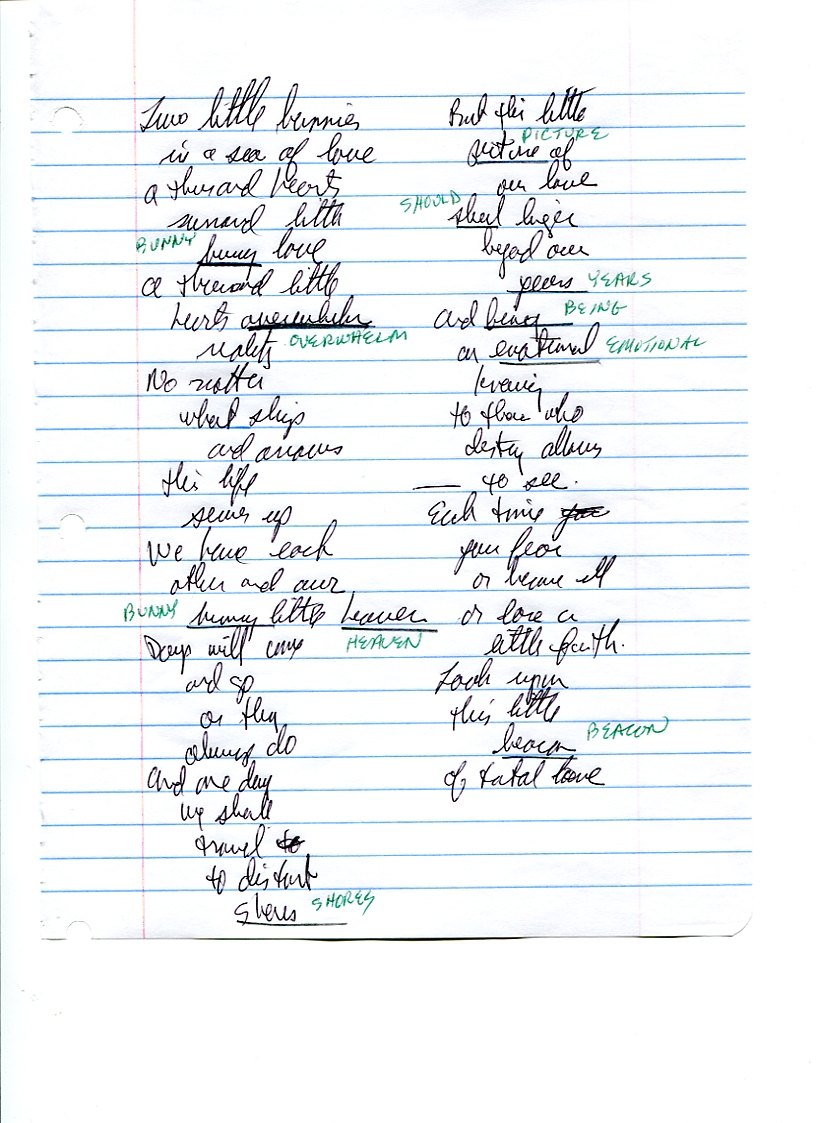 Two little bunnies
in a sea of love
a thousand hearts
surround little
BUNNY
bunny love
a thousand little
hearts overwhelm
OVERWHELM
reality
No matter
what slings
and arrows
this life
serves up
We have each
other and our
BUNNY
bunny little heaven
HEAVEN
Days will come
and go
as they
always do
And one day
we shall
travel to
to distant
shores
SHORES
But this little
PICTURE
picture of
our love
SHOULD
shoul linger
beyond our
years YEARS
and being BEING
an emotional EMOTIONAL
to those who
destiny allows
to see.
Each time you
you fear
or become ill
or lose a
little faith.
Look upon
this little
beacon BEACON
of total love